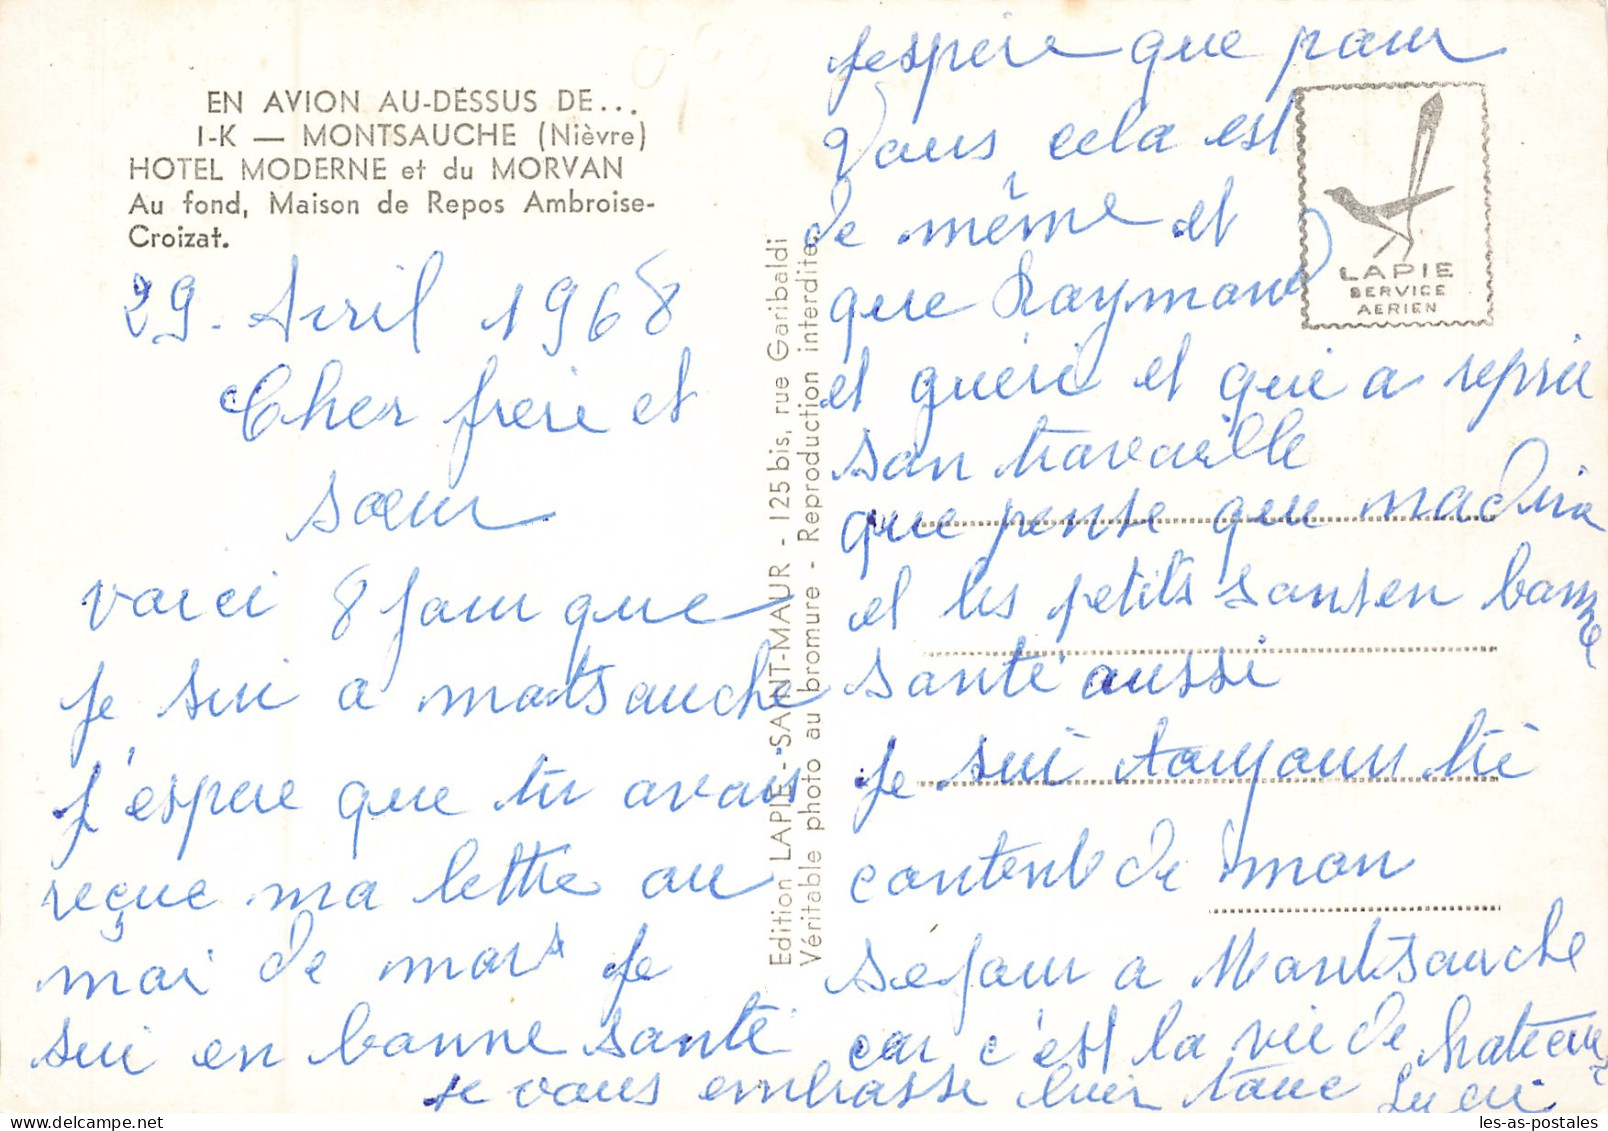 EN AVION AU-DESSUS DE...
I-K — MONTSAUCHE (Nièvre)
HOTEL MODERNE et du MORVAN
Au fond, Maison de Repos Ambroise-
Croizat.
29. Avril 1968
Cher frere et
sœur
voici 8 jour que
je sui a motsauche
j'espere que tu avais
reçue ma lettre au
moi de mars je
sui en bonne santé
jespere que pour
Vous cela est
de même et
que Raymond
et gueri et que a repris
son travaille
que pense que
et les petits sont en bonne
santé aussi
je sui toujours
content de mon
séjour a Montsauche
car c'est la vie de chateau
je vous embrasse bien
Edition LAPIE - SAINT-MAUR - 125 bis, rue Garibaldi
Véritable photo au bromure - Reproduction interdite.
LAPIE
SERVICE
AERIEN
© les-as-postales